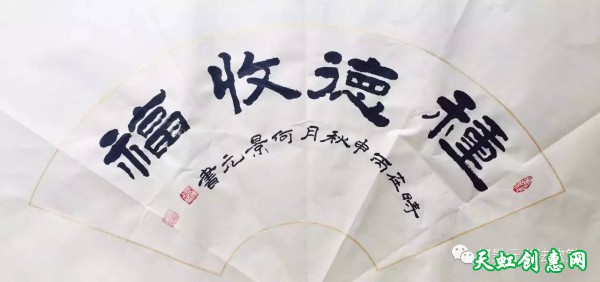 種德收福
時在丙申秋月何景元書
天虹创惠网